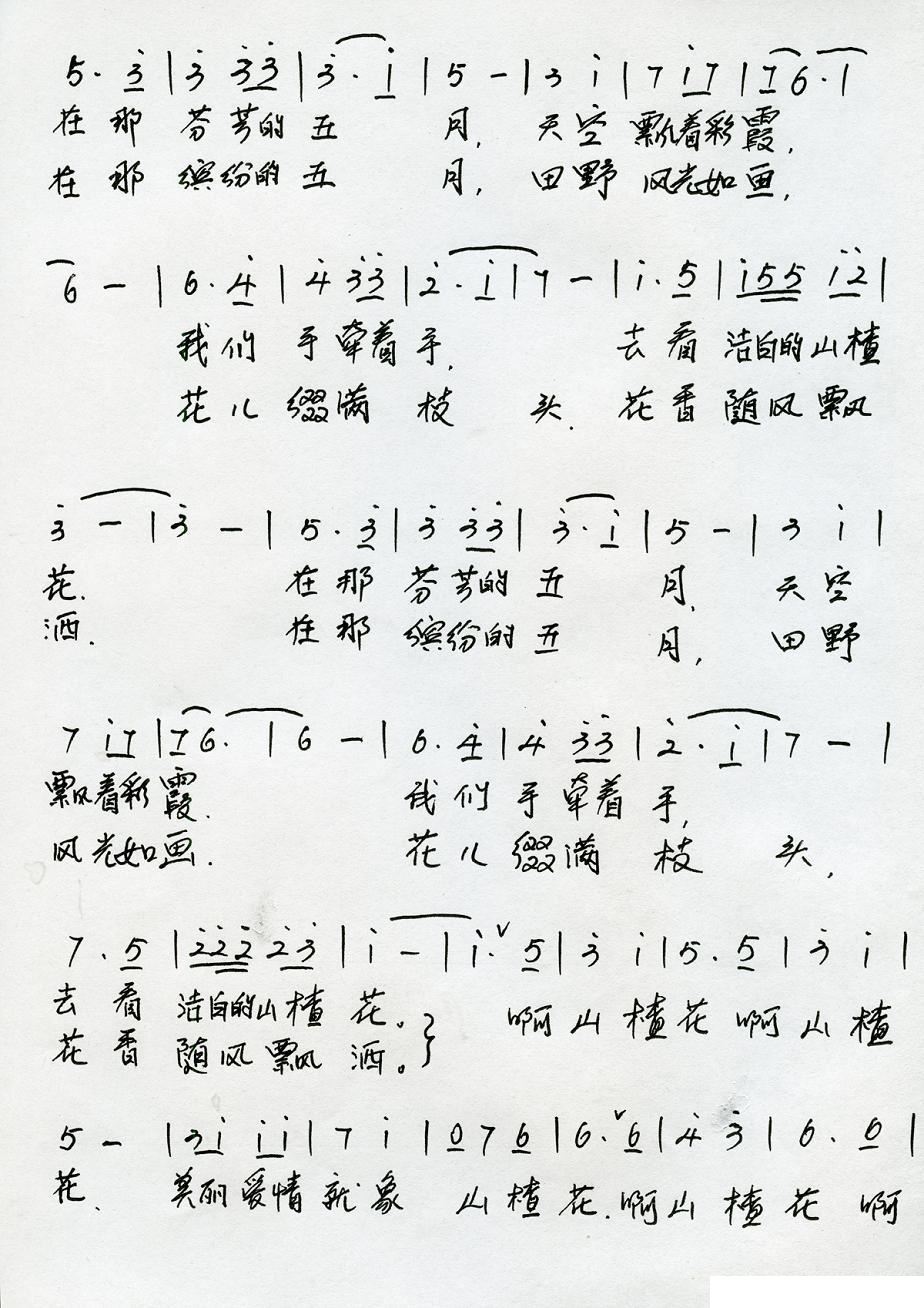 5· 3̇ | 3̇ 3̇3̇ | 3̇· 1̇ | 5 - | 3 1̇ | 7 1̇7 | 7 6· |
在那 芬芳的 五 月, 天空 飘着彩霞,
在那 缤纷的 五 月, 田野 风光如画,
6 - | 6· 4̇ | 4̇ 3̇3̇ | 2̇· 1̇ | 7 - | 1̇· 5 | 1̇55 1̇2̇ |
我们 手牵着手, 去看 洁白的山楂
花儿 缀满 枝 头. 花香 随风飘
3̇ - | 3̇ - | 5· 3̇ | 3̇ 3̇3̇ | 3̇· 1̇ | 5 - | 3 1̇ |
花. 在那 芬芳的 五 月, 天空
洒. 在那 缤纷的 五 月, 田野
7 1̇7 | 7 6· | 6 - | 6· 4̇ | 4̇ 3̇3̇ | 2̇· 1̇ | 7 - |
飘着彩霞. 我们 手牵着 手,
风光如画. 花儿 缀满 枝 头,
7· 5 | 2̇2̇2̇ 2̇3̇ | 1̇ - | 1̇· ∨ 5 | 3̇ 1̇ | 5· 5 | 3̇ 1̇ |
去看 洁白的山楂 花。 啊山楂花 啊山楂
花香 随风飘 洒。}
5 - | 31̇ 1̇1̇ | 7 1̇ | 0 7 6 | 6· ∨ 6 | 4̇ 3̇ | 6· 6 |
花. 美丽爱情就象 山楂花.啊山楂花 啊